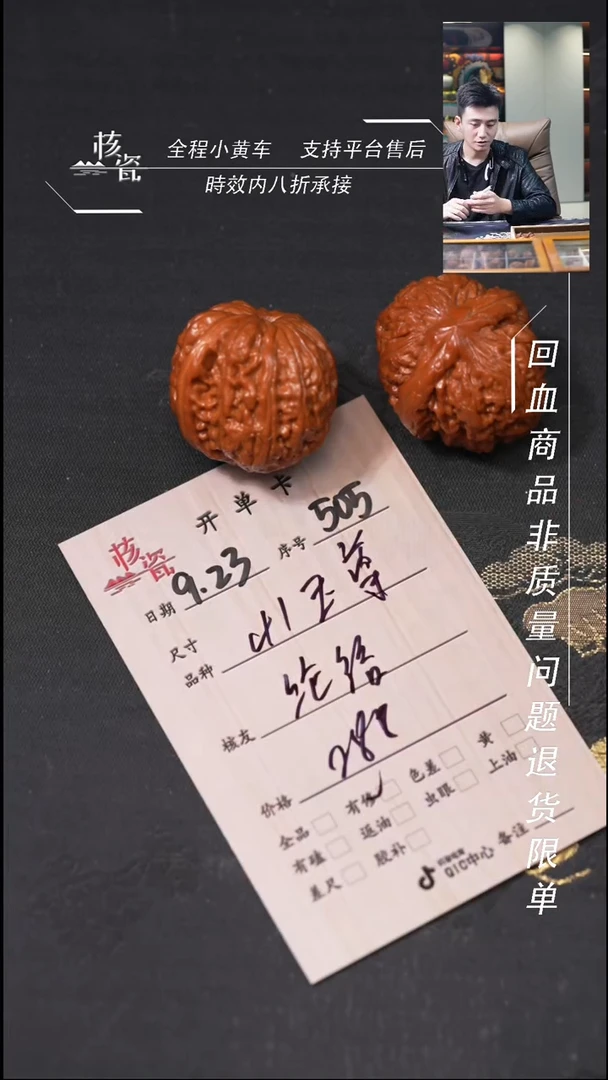 核瓷
全程小黄车 支持平台售后
時效内八折承接
回血商品非质量问题退货限单
开单卡
核瓷
日期 9.23 序号 505
尺寸
品种
核友
价格
全品 有伤 色差 黄
有磕 返油 虫眼 上油
差尺 胶补
QIC中心 备注